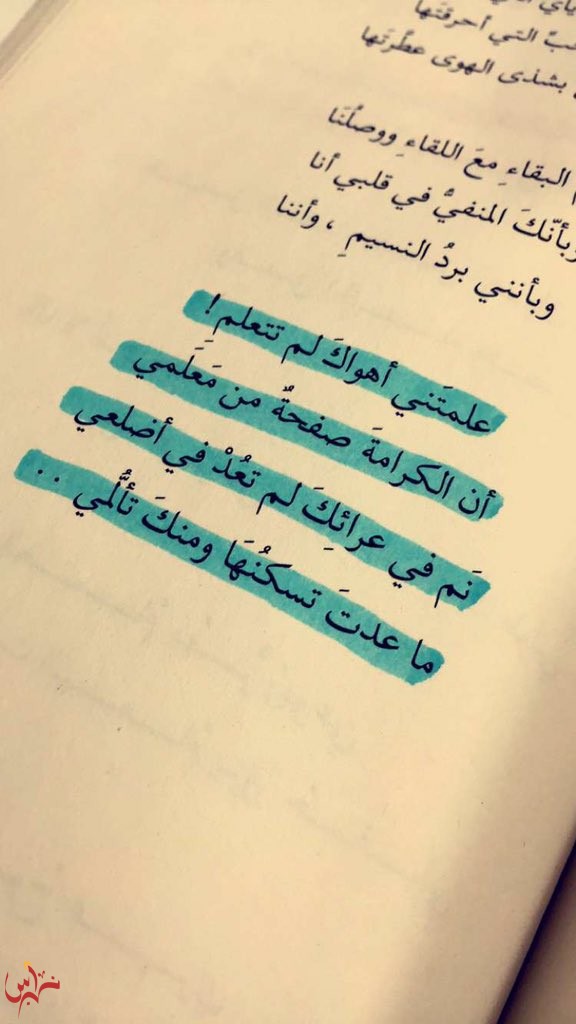 التي أحرقتَها
بشذى الهوى عطّرتَها
البقاءِ معَ اللقاءِ ووصلُنَا
وبأنّكَ المنفيُّ في قلبي أنا
وبأنني بردُ النسيمِ ، وأننا
علمتَني أهواكَ لم تتعلمِ!
أن الكرامةَ صفحةٌ من مَعَلَمي
نَم في عرائِكَ لم تعُدْ في أضلعي
ما عدتَ تسكُنُهَا ومنكَ تألُّمي . .